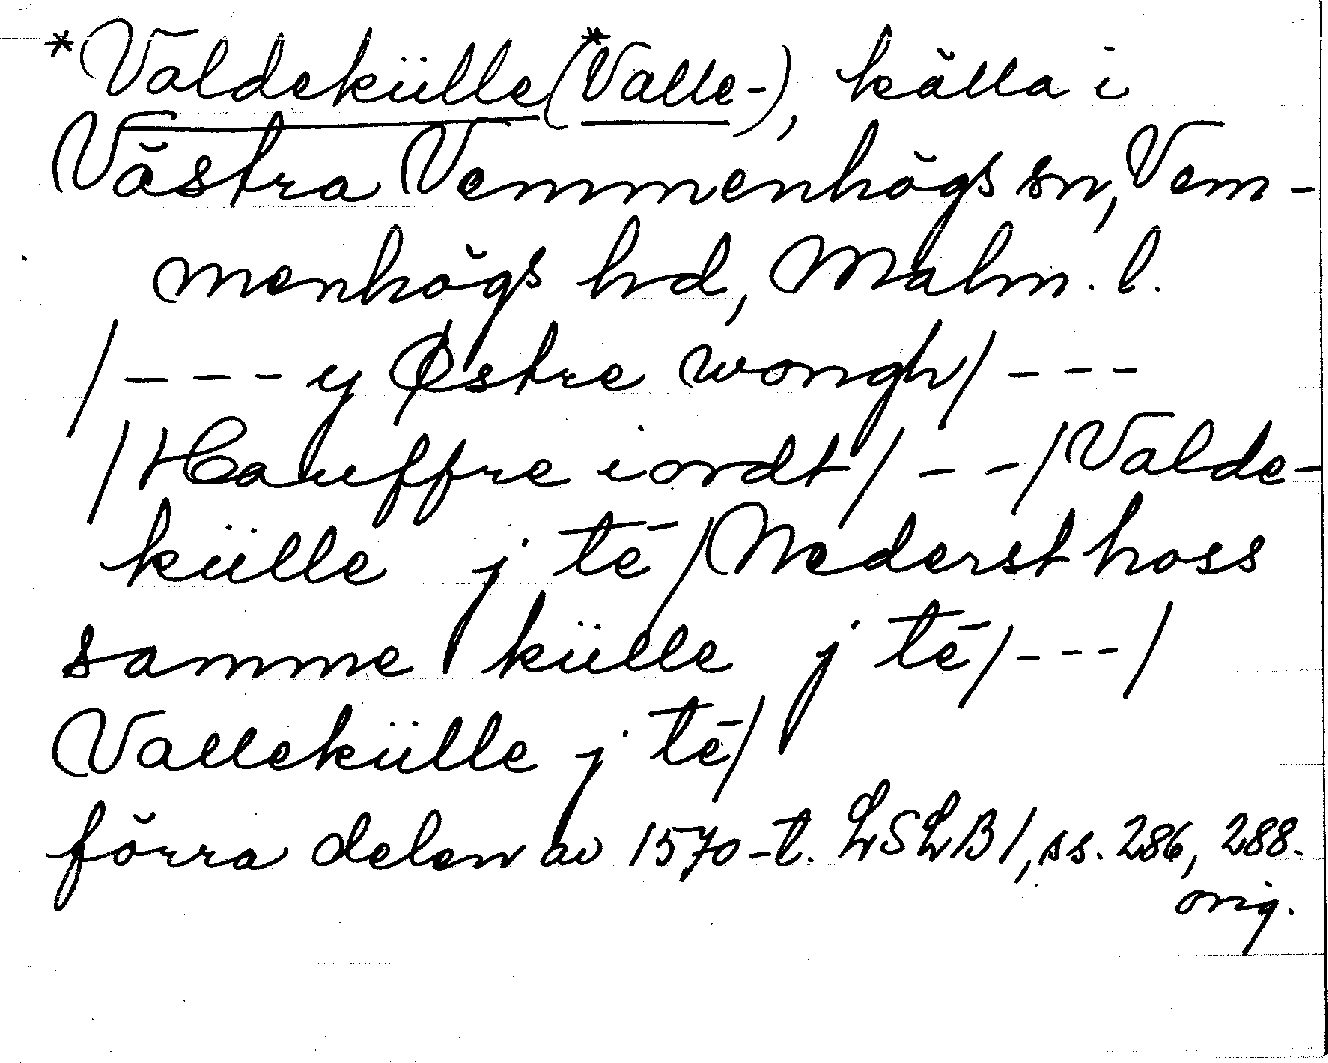 *Valdekülle (*Valle-), källa i
Västra Vemmenhögs sn, Vem-
menhögs hd, Malm. l.
/---y Østre wongh/---
/Hauffre iordt/--/Valde-
külle j tē/Nederst hoss
samme külle j tē/---/
Vallekülle j tē/
förra delen av 1570-t. LSLB 1, ss. 286, 288.
orig.